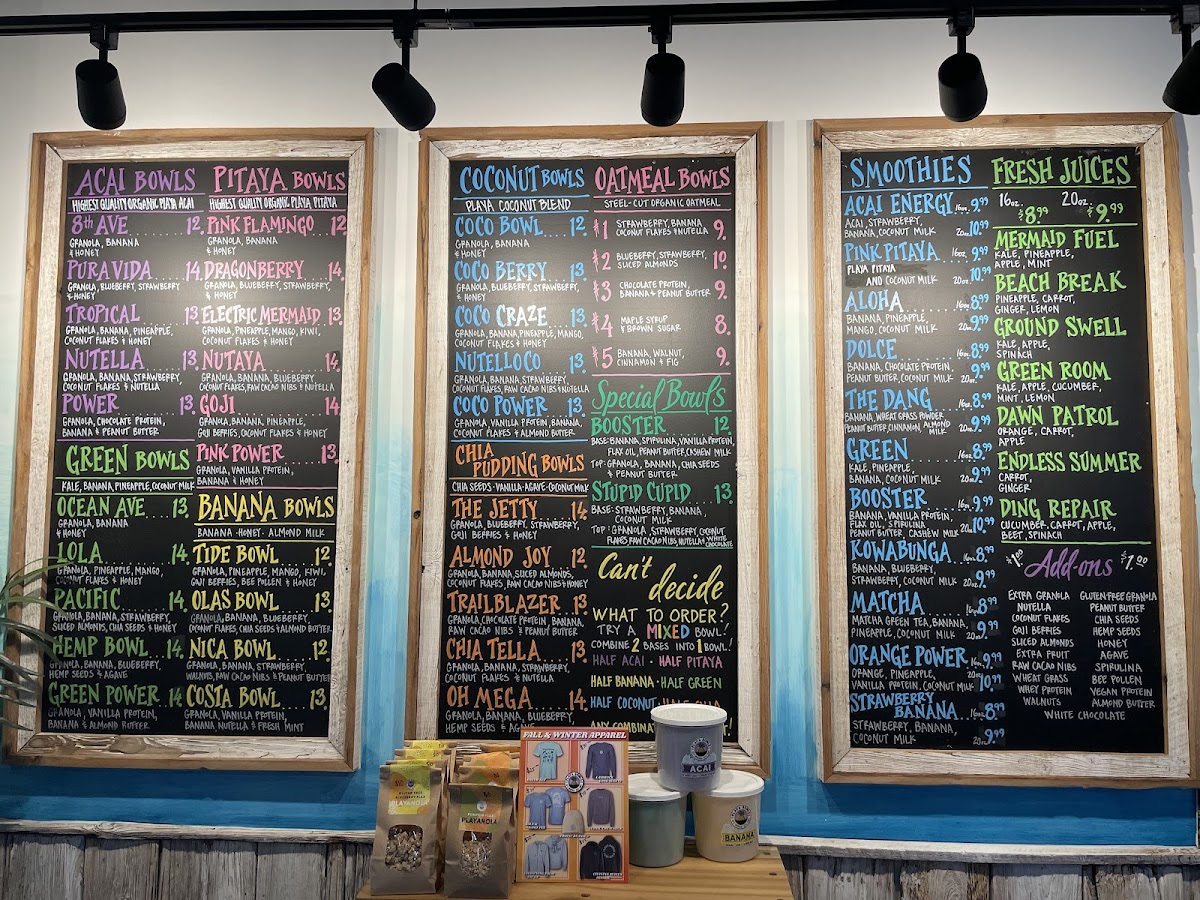 ACAI BOWLS
HIGHEST QUALITY ORGANIC PLAYA ACAI
8th AVE 12.
GRANOLA, BANANA
& HONEY
PURA VIDA 14.
GRANOLA, BLUEBERRY, STRAWBERRY
& HONEY
TROPICAL 13
GRANOLA, BANANA, PINEAPPLE,
COCONUT FLAKES & HONEY
NUTELLA 13.
GRANOLA, BANANA, STRAWBERRY,
COCONUT FLAKES & NUTELLA
POWER 13.
GRANOLA, CHOCOLATE PROTEIN,
BANANA & PEANUT BUTTER
GREEN BOWLS
KALE, BANANA, PINEAPPLE, COCONUT MILK
OCEAN AVE 13.
GRANOLA, BANANA
& HONEY
LOLA 14.
GRANOLA, PINEAPPLE, MANGO,
COCONUT FLAKES & HONEY
PACIFIC 14.
GRANOLA, BANANA, STRAWBERRY,
SLICED ALMONDS, CHIA SEEDS & HONEY
HEMP BOWL 14.
GRANOLA, BANANA, BLUEBERRY,
HEMP SEEDS & AGAVE
GREEN POWER 14.
GRANOLA, VANILLA PROTEIN,
BANANA & ALMOND BUTTER
PITAYA BOWLS
HIGHEST QUALITY ORGANIC PLAYA PITAYA
PINK FLAMINGO 12
GRANOLA, BANANA
& HONEY
DRAGONBERRY 14.
GRANOLA, BLUEBERRY, STRAWBERRY,
& HONEY
ELECTRIC MERMAID 13.
GRANOLA, PINEAPPLE, MANGO, KIWI,
COCONUT FLAKES & HONEY
NUTAYA 14.
GRANOLA, BANANA, BLUEBERRY
COCONUT FLAKES, RAW CACAO NIBS & NUTELLA
GOJI 14.
GRANOLA, BANANA, PINEAPPLE,
GOJI BERRIES, COCONUT FLAKES & HONEY
PINK POWER 13.
GRANOLA, VANILLA PROTEIN,
BANANA & HONEY
BANANA BOWLS
BANANA · HONEY · ALMOND MILK
TIDE BOWL 12.
GRANOLA, PINEAPPLE, MANGO, KIWI,
GOJI BERRIES, BEE POLLEN & HONEY
OLAS BOWL 13.
GRANOLA, BANANA, BLUEBERRY,
COCONUT FLAKES, CHIA SEEDS & ALMOND BUTTER
NICA BOWL 12
GRANOLA, BANANA, STRAWBERRY,
WALNUTS, RAW CACAO NIBS & PEANUT BUTTER
COSTA BOWL 13.
GRANOLA, VANILLA PROTEIN,
BANANA, NUTELLA & PEANUT BUTTER
COCONUT BOWLS
PLAYA COCONUT BLEND
COCO BOWL 12.
GRANOLA, BANANA
& HONEY
COCO BERRY 13.
GRANOLA, BLUEBERRY, STRAWBERRY,
& HONEY
COCO CRAZE 13.
GRANOLA, BANANA, PINEAPPLE, MANGO,
COCONUT FLAKES & HONEY
NUTELLOCO 13.
GRANOLA, BANANA, STRAWBERRY,
COCONUT FLAKES, RAW CACAO NIBS & NUTELLA
COCO POWER 13.
GRANOLA, VANILLA PROTEIN, BANANA,
COCONUT FLAKES & ALMOND BUTTER
CHIA
PUDDING BOWLS
CHIA SEEDS·VANILLA·AGAVE·COCONUT MILK
THE JETTY 14.
GRANOLA, BLUEBERRY, STRAWBERRY,
GOJI BERRIES & HONEY
ALMOND JOY 12.
GRANOLA, BANANA, SLICED ALMONDS,
COCONUT FLAKES, RAW CACAO NIBS & HONEY
TRAILBLAZER 13.
GRANOLA, CHOCOLATE PROTEIN, BANANA,
RAW CACAO NIBS & PEANUT BUTTER
CHIA TELLA 13.
GRANOLA, BANANA, STRAWBERRY,
COCONUT FLAKES & NUTELLA
OH MEGA 14.
GRANOLA, BANANA, BLUEBERRY,
HEMP SEEDS & AGAVE
OATMEAL BOWLS
STEEL-CUT ORGANIC OATMEAL
#1 STRAWBERRY, BANANA 9.
COCONUT FLAKES & NUTELLA
#2 BLUEBERRY, STRAWBERRY, 10.
SLICED ALMONDS
#3 CHOCOLATE PROTEIN, 9.
BANANA & PEANUT BUTTER
#4 MAPLE SYRUP 8.
& BROWN SUGAR
#5 BANANA, WALNUT, 9.
CINNAMON & FIG
Special Bowls
BOOSTER 12.
BASE: BANANA, SPIRULINA, VANILLA PROTEIN,
FLAX OIL, PEANUT BUTTER, CASHEW MILK
TOP: GRANOLA, BANANA, CHIA SEEDS
& PEANUT BUTTER
STUPID CUPID 13.
BASE: STRAWBERRY, BANANA,
COCONUT MILK
TOP: GRANOLA, STRAWBERRY, COCONUT
FLAKES, RAW CACAO NIBS, NUTELLA & WHITE CHOCOLATE
Can't
decide
WHAT TO ORDER?
TRY A MIXED BOWL!
COMBINE 2 BASES INTO 1 BOWL!
HALF ACAI · HALF PITAYA
HALF BANANA · HALF GREEN
HALF COCONUT · HALF CHIA
ANY COMBINAT !
SMOOTHIES
ACAI ENERGY 16oz. 9.99
ACAI, STRAWBERRY,
BANANA, COCONUT MILK 20oz 10.99
PINK PITAYA 16oz. 9.99
PLAYA PITAYA
AND COCONUT MILK 20oz 10.99
ALOHA 16oz 8.99
BANANA, PINEAPPLE,
MANGO, COCONUT MILK 20oz 9.99
DOLCE 16oz 8.99
BANANA, CHOCOLATE PROTEIN,
PEANUT BUTTER, COCONUT MILK 20oz 9.99
THE DANG 16oz 8.99
BANANA, WHEAT GRASS POWDER
PEANUT BUTTER, CINNAMON, ALMOND MILK 20oz 9.99
GREEN 16oz 8.99
KALE, PINEAPPLE,
BANANA, COCONUT MILK 20oz 9.99
BOOSTER 16oz 9.99
BANANA, VANILLA PROTEIN,
FLAX OIL, SPIRULINA,
PEANUT BUTTER, CASHEW MILK 20oz 10.99
KOWABUNGA 16oz 8.99
BANANA, BLUEBERRY,
STRAWBERRY, COCONUT MILK 20oz 9.99
MATCHA 16oz 8.99
MATCHA GREEN TEA, BANANA,
PINEAPPLE, COCONUT MILK 20oz 9.99
ORANGE POWER 16oz 9.99
ORANGE, PINEAPPLE,
VANILLA PROTEIN, COCONUT MILK 20oz 10.99
STRAWBERRY
BANANA 16oz 8.99
STRAWBERRY, BANANA,
COCONUT MILK 20oz 9.99
FRESH JUICES
16oz. $8.99 20oz. $9.99
MERMAID FUEL
KALE, PINEAPPLE,
APPLE, MINT
BEACH BREAK
PINEAPPLE, CARROT,
GINGER, LEMON
GROUND SWELL
KALE, APPLE,
SPINACH
GREEN ROOM
KALE, APPLE, CUCUMBER,
MINT, LEMON
DAWN PATROL
ORANGE, CARROT,
APPLE
ENDLESS SUMMER
CARROT,
GINGER
DING REPAIR
CUCUMBER, CARROT, APPLE,
BEET, SPINACH
$1.00 Add-ons $1.90
EXTRA GRANOLA
NUTELLA
COCONUT FLAKES
GOJI BERRIES
SLICED ALMONDS
EXTRA FRUIT
RAW CACAO NIBS
WHEAT GRASS
WHEY PROTEIN
WALNUTS
GLUTEN FREE GRANOLA
PEANUT BUTTER
CHIA SEEDS
HEMP SEEDS
HONEY
AGAVE
SPIRULINA
BEE POLLEN
VEGAN PROTEIN
ALMOND BUTTER
WHITE CHOCOLATE
FALL & WINTER APPAREL
PLAYANOLA
PLAYANOLA
ACAI
BANANA